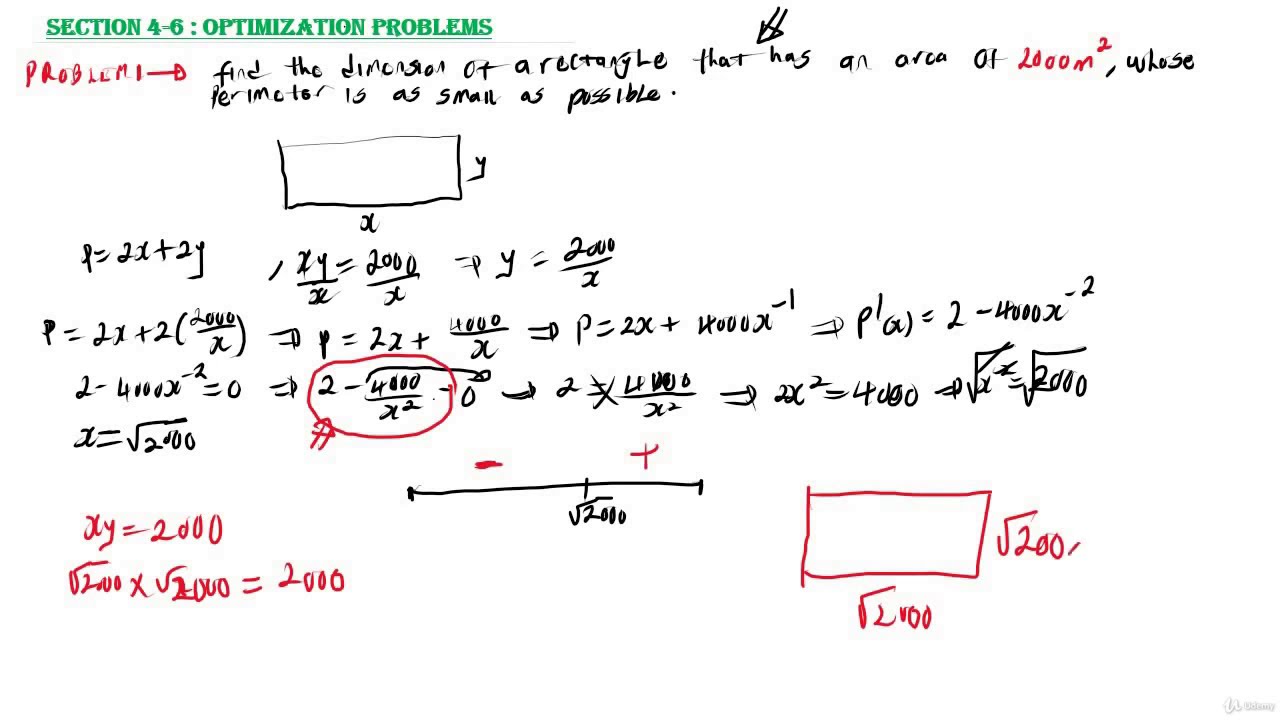 SECTION 4-6 : OPTIMIZATION PROBLEMS
PROBLEM 1 → find the dimension of a rectangle that has an area of 2000m², whose
perimeter is as small as possible.
y
x
P=2x+2y , xy/x = 2000/x ⇒ y = 2000/x
P = 2x+2(2000/x) ⇒ P = 2x + 4000/x ⇒ P=2x + 4000x⁻¹ ⇒ P'(x) = 2 - 4000x⁻²
2 - 4000x⁻² = 0 ⇒ 2 - 4000/x² = 0 ⇒ 2 = 4000/x² ⇒ 2x² = 4000 ⇒ √x² = √2000
x = √2000
- +
√2000
xy = 2000
√2000 × √2000 = 2000
√200
√2000
Udemy